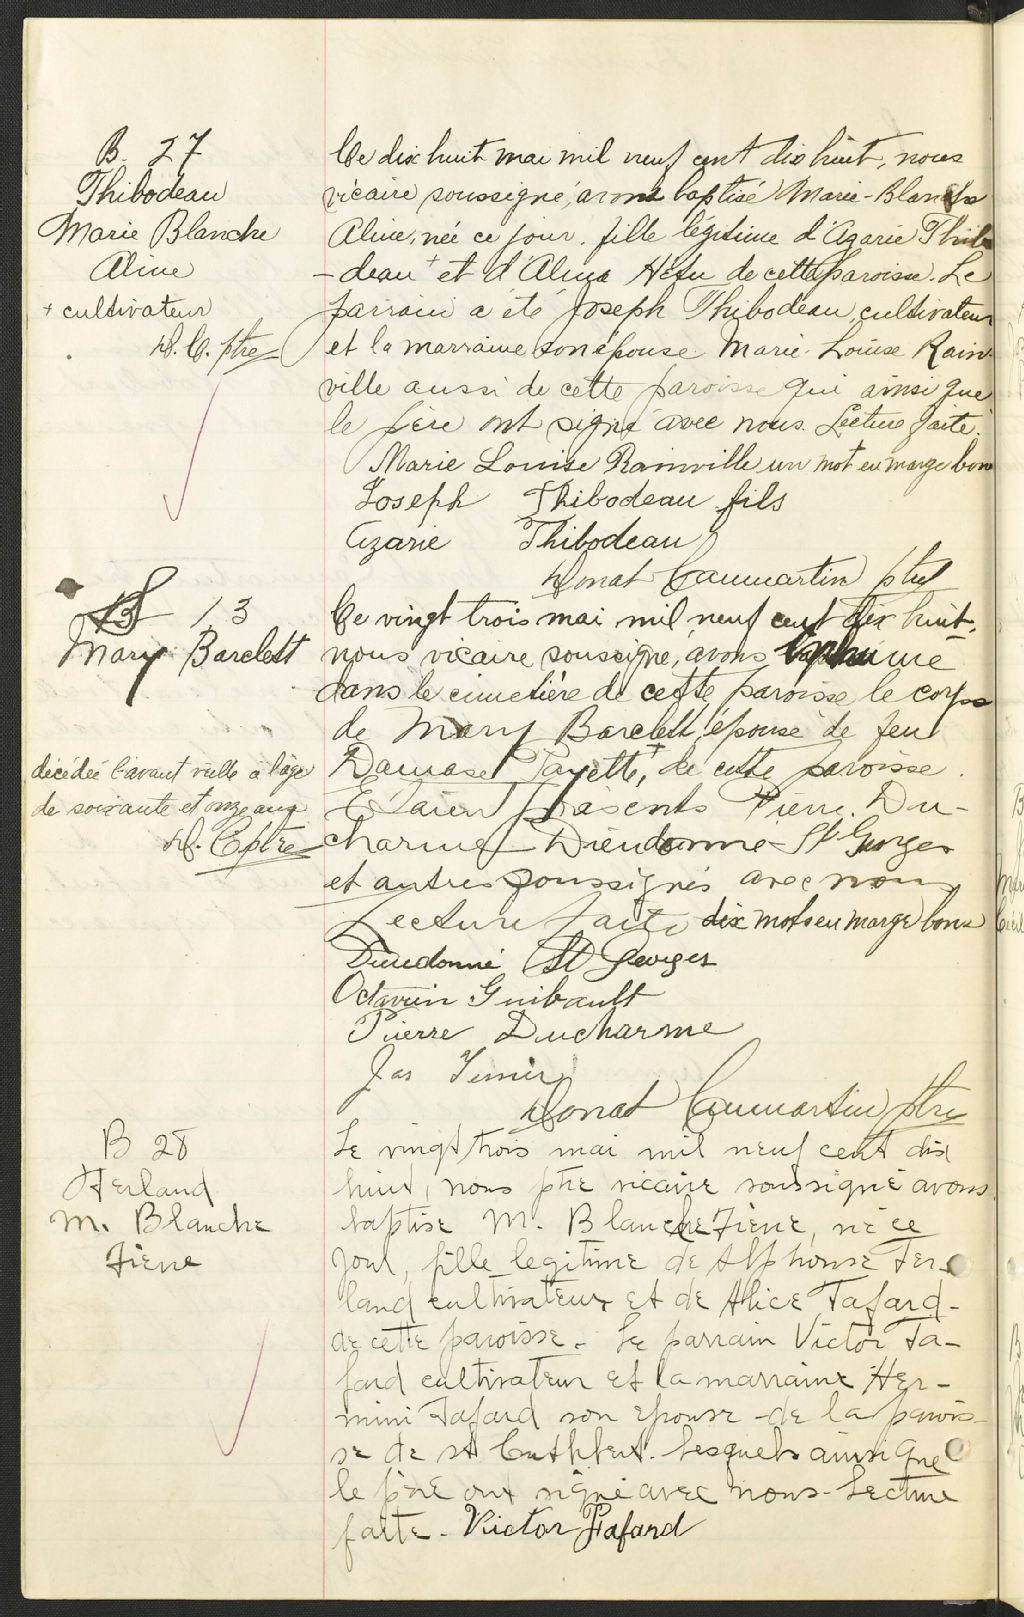 B. 27
Thibodeau
Marie Blanche
Aline
+ cultivateur
D. C. ptre
Ce dix huit mai mil neuf cent dix huit, nous
vicaire soussigné, avons baptisé Marie-Blanche
Aline, née ce jour, fille légitime d'Azarie Thibo
-deau + et d'Alma Hétu de cette paroisse. Le
parrain a été Joseph Thibodeau, cultivateur
et la marraine son épouse Marie-Louise Rain-
ville aussi de cette paroisse qui ainsi que
le père ont signé avec nous. Lecture faite.
Marie Louise Rainville un mot en marge bon
Joseph Thibodeau fils
Azarie Thibodeau
Donat Caumartin ptre
S 13
Mary Barclett
décédée l'avant veille à l'age
de soixante et onze ans
D. C ptre
Ce vingt trois mai mil neuf cent dix huit,
nous vicaire soussigné, avons inhumé
dans le cimetière de cette paroisse le corps
de Mary Barclett, épouse de feu
Damase Payette, + de cette paroisse.
Etaient présents Pierre Du-
charme Dieudonné St Georges
et autres soussignés avec nous
Lecture faite dix mots en marge bons
Dieudonné St Georges
Octavien Guibault
Pierre Ducharme
Jos
Donat Caumartin ptre
B 28
Ferland
M. Blanche
Irène
Le vingt trois mai mil neuf cent dix
huit, nous ptre vicaire soussigné avons
baptise M. Blanche Irène, née ce
jour, fille legitime de Alphonse Fer-
land cultivateur et de Alice Fafard-
de cette paroisse. Le parrain Victor Fa-
fard cultivateur et la marraine Her-
mini Fafard son epouse de la parois-
se de st Cuthbert. Lesquels ainsi que
le père ont signé avec nous. Lecture
faite - Victor Fafard